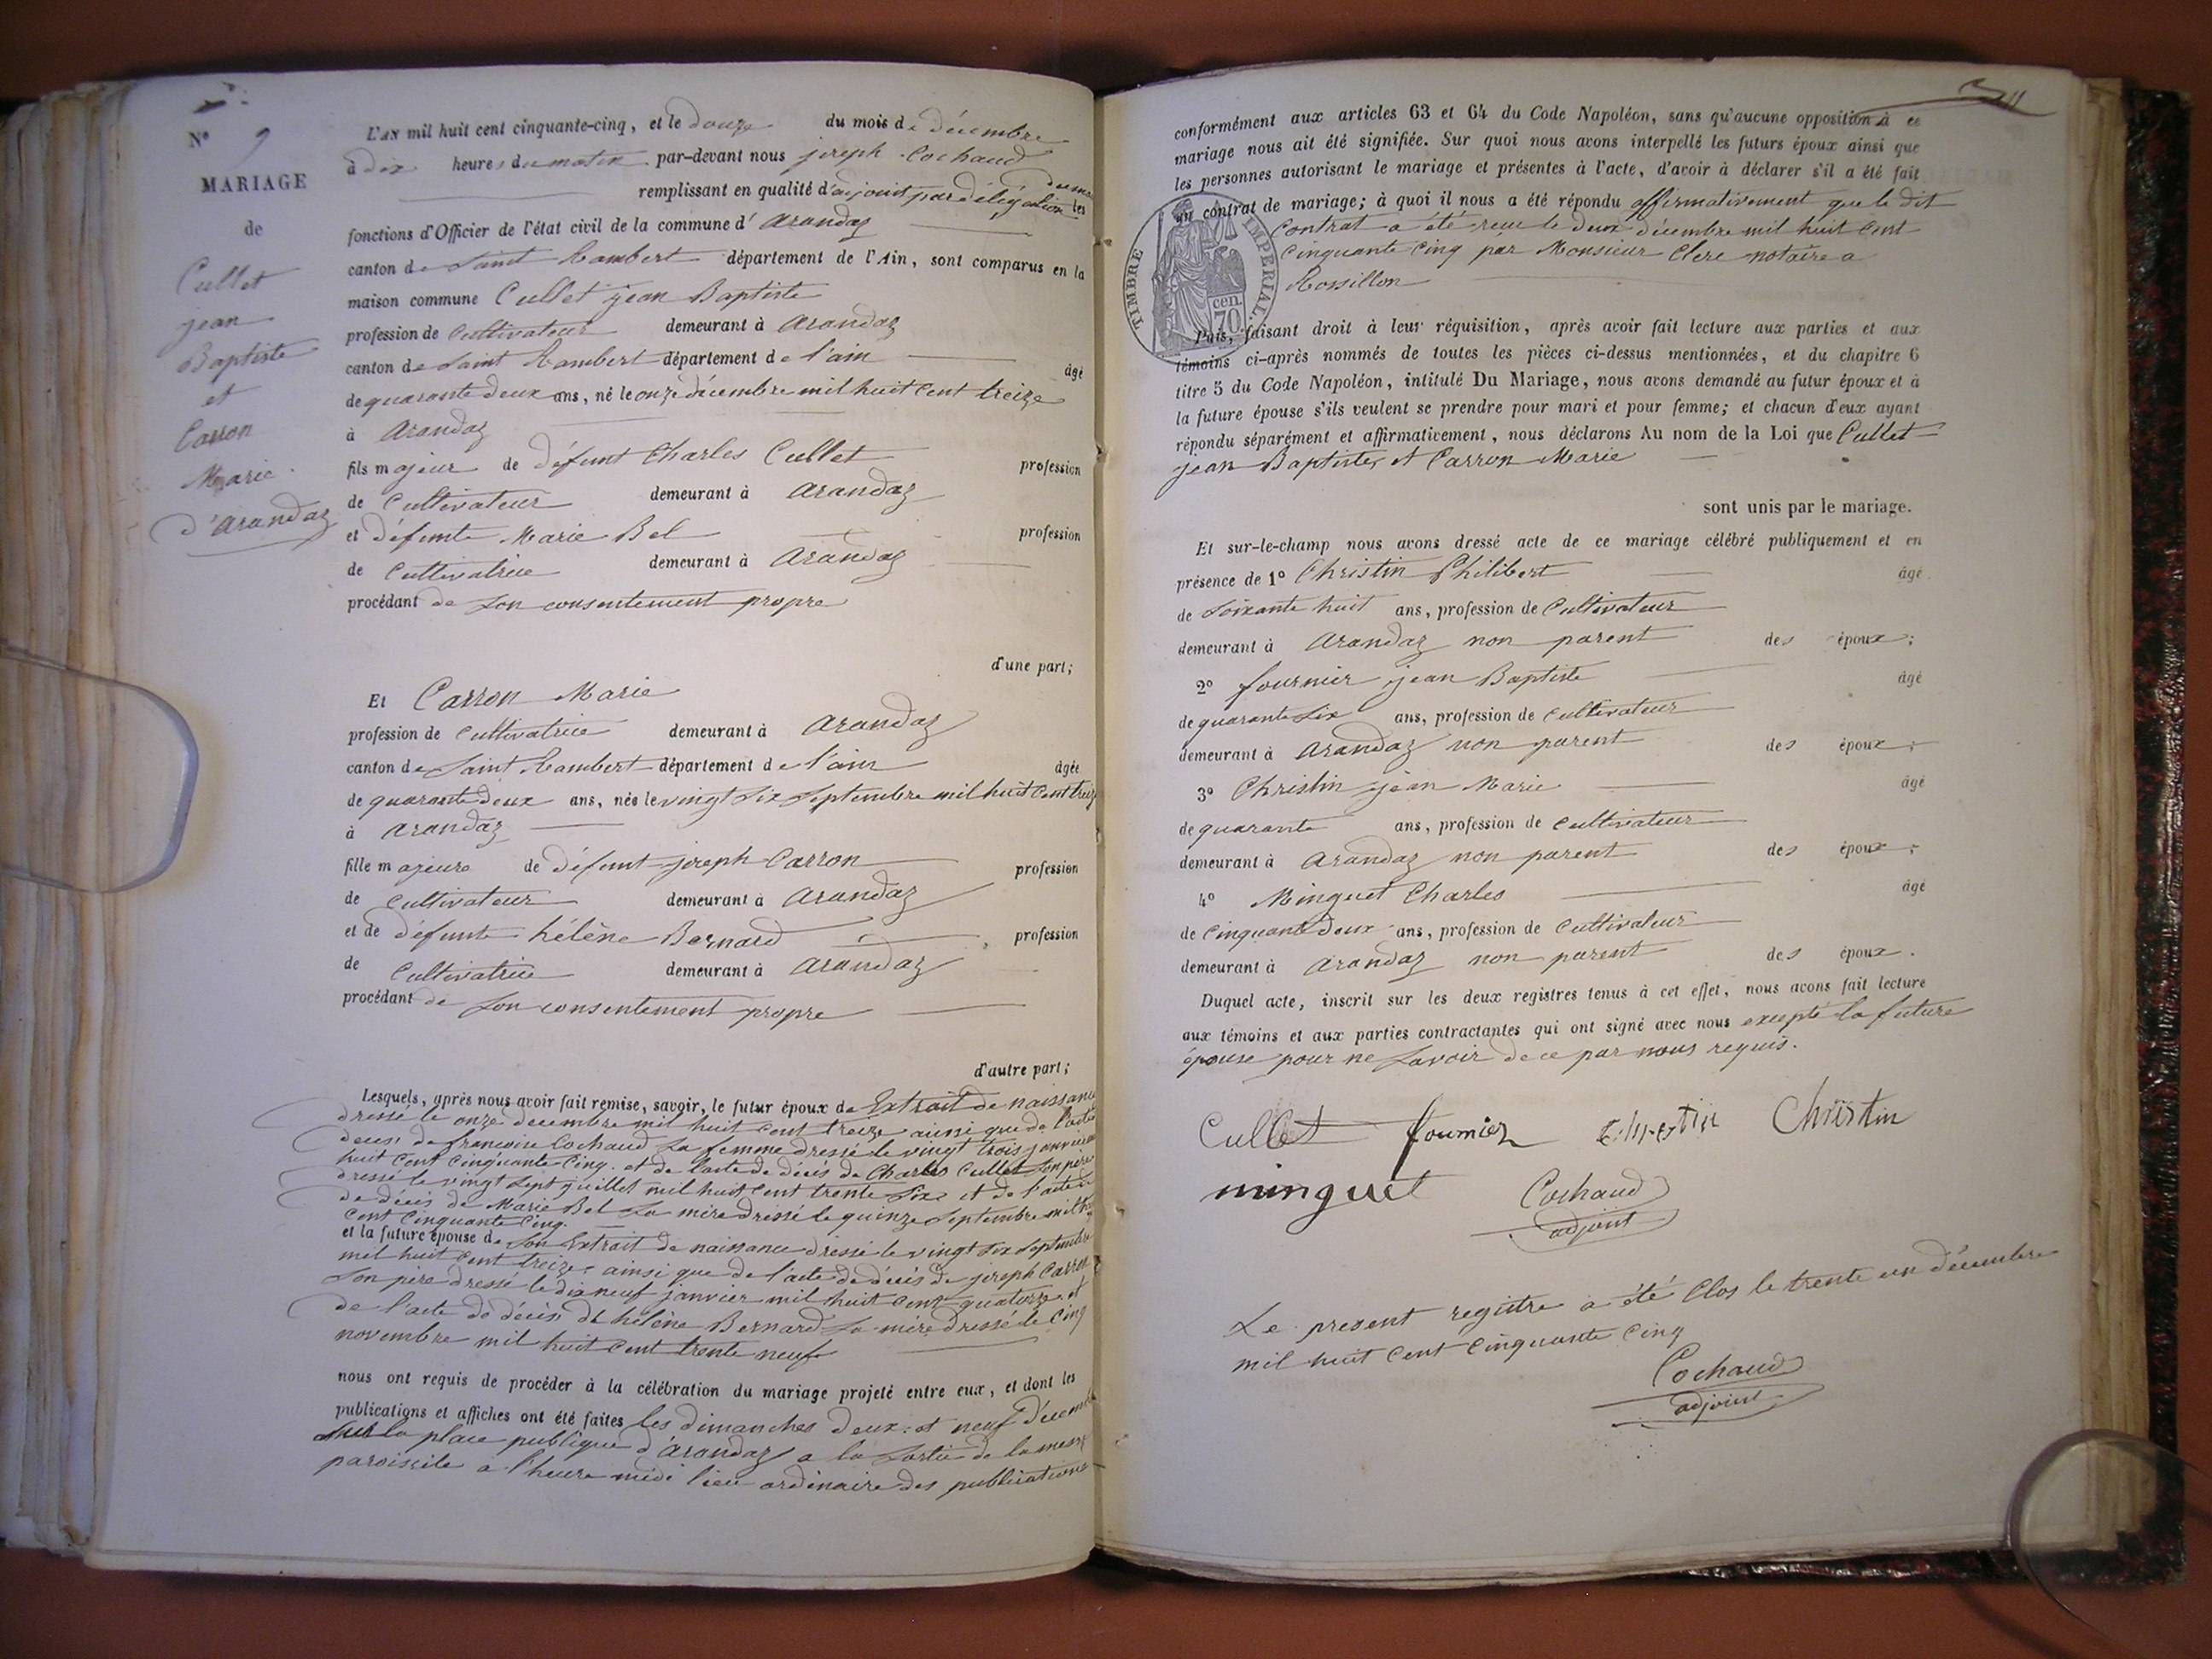 N° 9
MARIAGE
de
Cullet
jean
Baptiste
et
Carron
Marie
d'arandaz
L'AN mil huit cent cinquante-cinq, et le douze du mois de décembre
à dix heures du matin par-devant nous joseph Cochaud
remplissant en qualité d'adjoint par délégation du maire les
fonctions d'Officier de l'état civil de la commune d' arandaz
canton de Saint Rambert département de l'Ain, sont comparus en la
maison commune Cullet jean Baptiste
profession de cultivateur demeurant à arandaz
canton de Saint Rambert département de l'ain âgé
de quarante deux ans, né le onze décembre mil huit cent treize
à arandaz
fils majeur de défunt Charles Cullet profession
de Cultivateur demeurant à arandaz
et défunte Marie Bel profession
de Cultivatrice demeurant à arandaz
procédant de son consentement propre
d'une part;
Et Carron Marie
profession de cultivatrice demeurant à arandaz
canton de Saint Rambert département de l'ain âgée
de quarante deux ans, née le vingt six septembre mil huit cent treize
à arandaz
fille majeure de défunt joseph Carron profession
de cultivateur demeurant à arandaz
et de défunte hélène Bernard profession
de Cultivatrice demeurant à arandaz
procédant de son consentement propre
d'autre part;
Lesquels, après nous avoir fait remise, savoir, le futur époux de Extrait de naissance
dressé le onze decembre mil huit cent treize ainsi que de l'acte
deces de francoise Cochaud sa femme dressé le vingt trois janvier
huit cent cinquante cinq. et de l'acte de décès de Charles Cullet son père
dressé le vingt sept juillet mil huit cent trente six et de l'acte
de décès de Marie Bel sa mère dressé le quinze septembre mil
cent cinquante cinq.
et la future épouse de son Extrait de naissance dressé le vingt six septembre
mil huit cent treize, ainsi que de l'acte de décès de joseph Carron
son père dressé le dix neuf janvier mil huit cent quatorze et
de l'acte de décès de hélène Bernard sa mère dressé le cinq
novembre mil huit cent trente neuf
nous ont requis de procéder à la célébration du mariage projeté entre eux, et dont les
publications et affiches ont été faites les dimanches deux et neuf décembre
sur la place publique d'arandaz a la sortie de la messe
paroissile a l'heure midi lieu ordinaire des publications
conformément aux articles 63 et 64 du Code Napoléon, sans qu'aucune opposition à ce
mariage nous ait été signifiée. Sur quoi nous avons interpellé les futurs époux ainsi que
les personnes autorisant le mariage et présentes à l'acte, d'avoir à déclarer s'il a été fait
un contrat de mariage; à quoi il nous a été répondu affirmativement que le dit
contrat a été reçu le deux décembre mil huit cent
cinquante cinq par Monsieur Clerc notaire a
Rossillon
TIMBRE IMPERIAL
cen.
70
Puis, faisant droit à leur réquisition, après avoir fait lecture aux parties et aux
témoins ci-après nommés de toutes les pièces ci-dessus mentionnées, et du chapitre 6
titre 5 du Code Napoléon, intitulé Du Mariage, nous avons demandé au futur époux et à
la future épouse s'ils veulent se prendre pour mari et pour femme; et chacun d'eux ayant
répondu séparément et affirmativement, nous déclarons Au nom de la Loi que Cullet
jean Baptiste, et Carron Marie
sont unis par le mariage.
Et sur-le-champ nous avons dressé acte de ce mariage célébré publiquement et en
présence de 1° Christin Philibert âgé
de soixante huit ans, profession de Cultivateur
demeurant à arandaz non parent des époux;
2° fournier jean Baptiste âgé
de quarante six ans, profession de cultivateur
demeurant à arandaz non parent des époux;
3° Christin jean Marie âgé
de quarante ans, profession de cultivateur
demeurant à arandaz non parent des époux;
4° Minguet Charles âgé
de cinquante deux ans, profession de cultivateur
demeurant à arandaz non parent des époux.
Duquel acte, inscrit sur les deux registres tenus à cet effet, nous avons fait lecture
aux témoins et aux parties contractantes qui ont signé avec nous excepté la future
épouse pour ne savoir de ce par nous requis.
Cullet fournier Christin Christin
minguet Cochaud
adjoint
Le present registre a été Clos le trente un décembre
mil huit cent cinquante cinq
Cochaud
adjoint